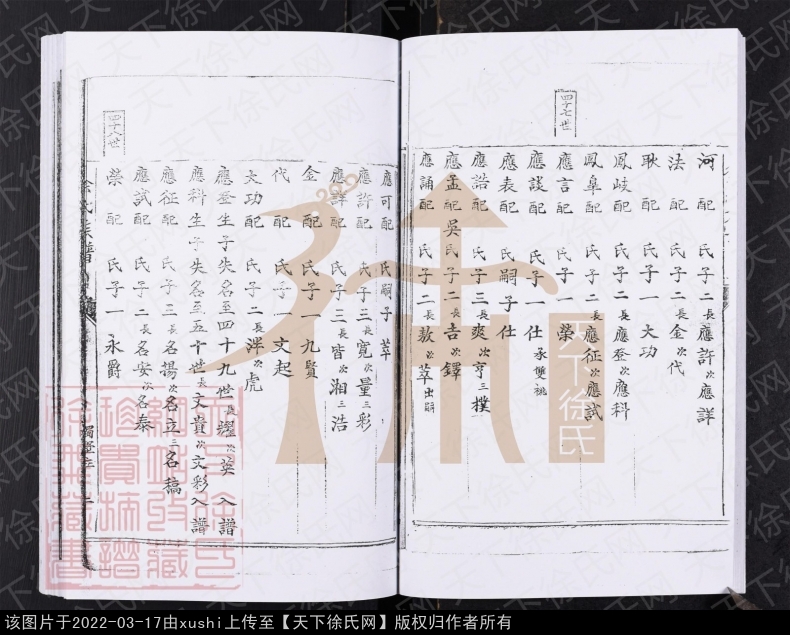 四十七世
河配 氏子二長應許次應詳
法配 氏子二長金次代
耿配 氏子一大功
鳳岐配 氏子二長應登次應科
鳳皐配 氏子二長應征次應試
應言配 氏子一榮
應談配 氏子一仕承雙祧
應表配 氏嗣子仕
應誥配 氏子三長爽次亨三撲
應孟配吳氏子二長吉次鐸
應誦配 氏子二長敖次萃出嗣
四十八世
應可配 氏嗣子萃
應許配 氏子三長寬次量三彩
應詳配 氏子三長皆次湘三浩
金配 氏子一九賢
代配 氏子一文起
大功配 氏子二長泮次虎
應登生子失名至四十九世長燿次英入譜
應科生子失名至五十世長文貴次文彩入譜
應征配 氏子三長名揚次名立三名稿
應試配 氏子二長名安次名泰
榮配 氏子一永爵
徐氏族譜
天下徐氏
天下徐氏网
该图片于2022-03-17由xushi上传至【天下徐氏网】版权归作者所有